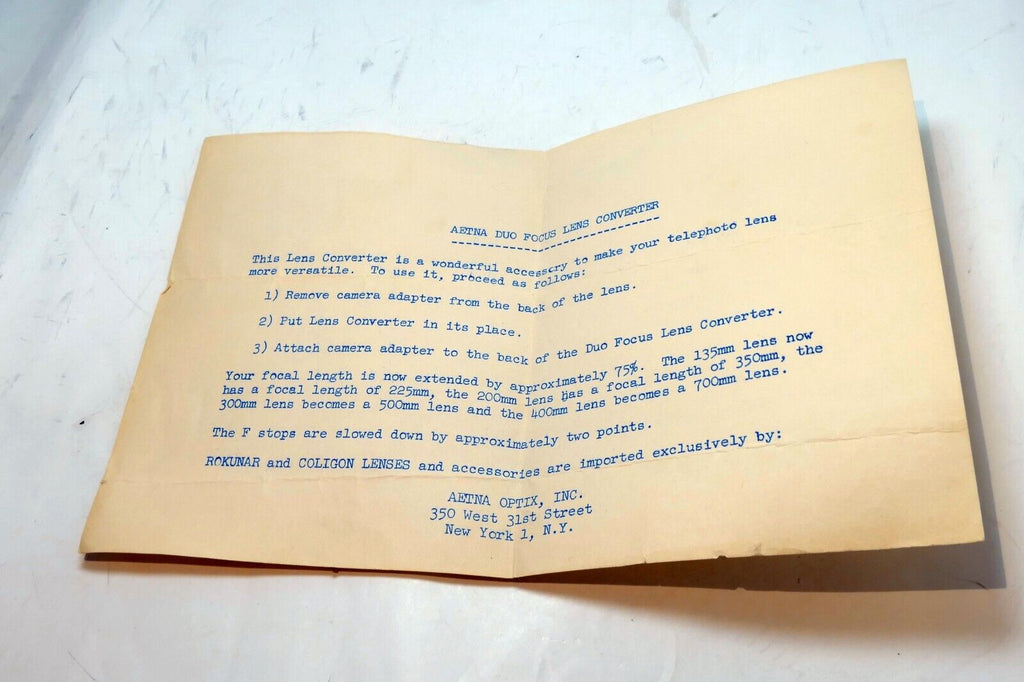 AETNA DUO FOCUS LENS CONVERTER
This Lens Converter is a wonderful accessory to make your telephoto lens
more versatile. To use it, proceed as follows:
1) Remove camera adapter from the back of the lens.
2) Put Lens Converter in its place.
3) Attach camera adapter to the back of the Duo Focus Lens Converter.
Your focal length is now extended by approximately 75%. The 135mm lens now
has a focal length of 225mm, the 200mm lens has a focal length of 350mm, the
300mm lens becomes a 500mm lens and the 400mm lens becomes a 700mm lens.
The F stops are slowed down by approximately two points.
ROKUNAR and COLIGON LENSES and accessories are imported exclusively by:
AETNA OPTIX, INC.
350 West 31st Street
New York 1, N.Y.